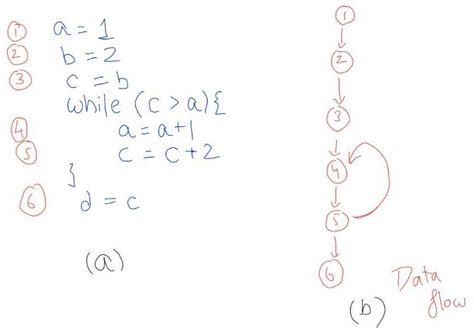 1 a = 1
2 b = 2
3 c = b
while (c > a) {
4 a = a+1
5 c = c + 2
}
6 d = c
(a)
1
2
3
4
5
6
(b)
Data
flow